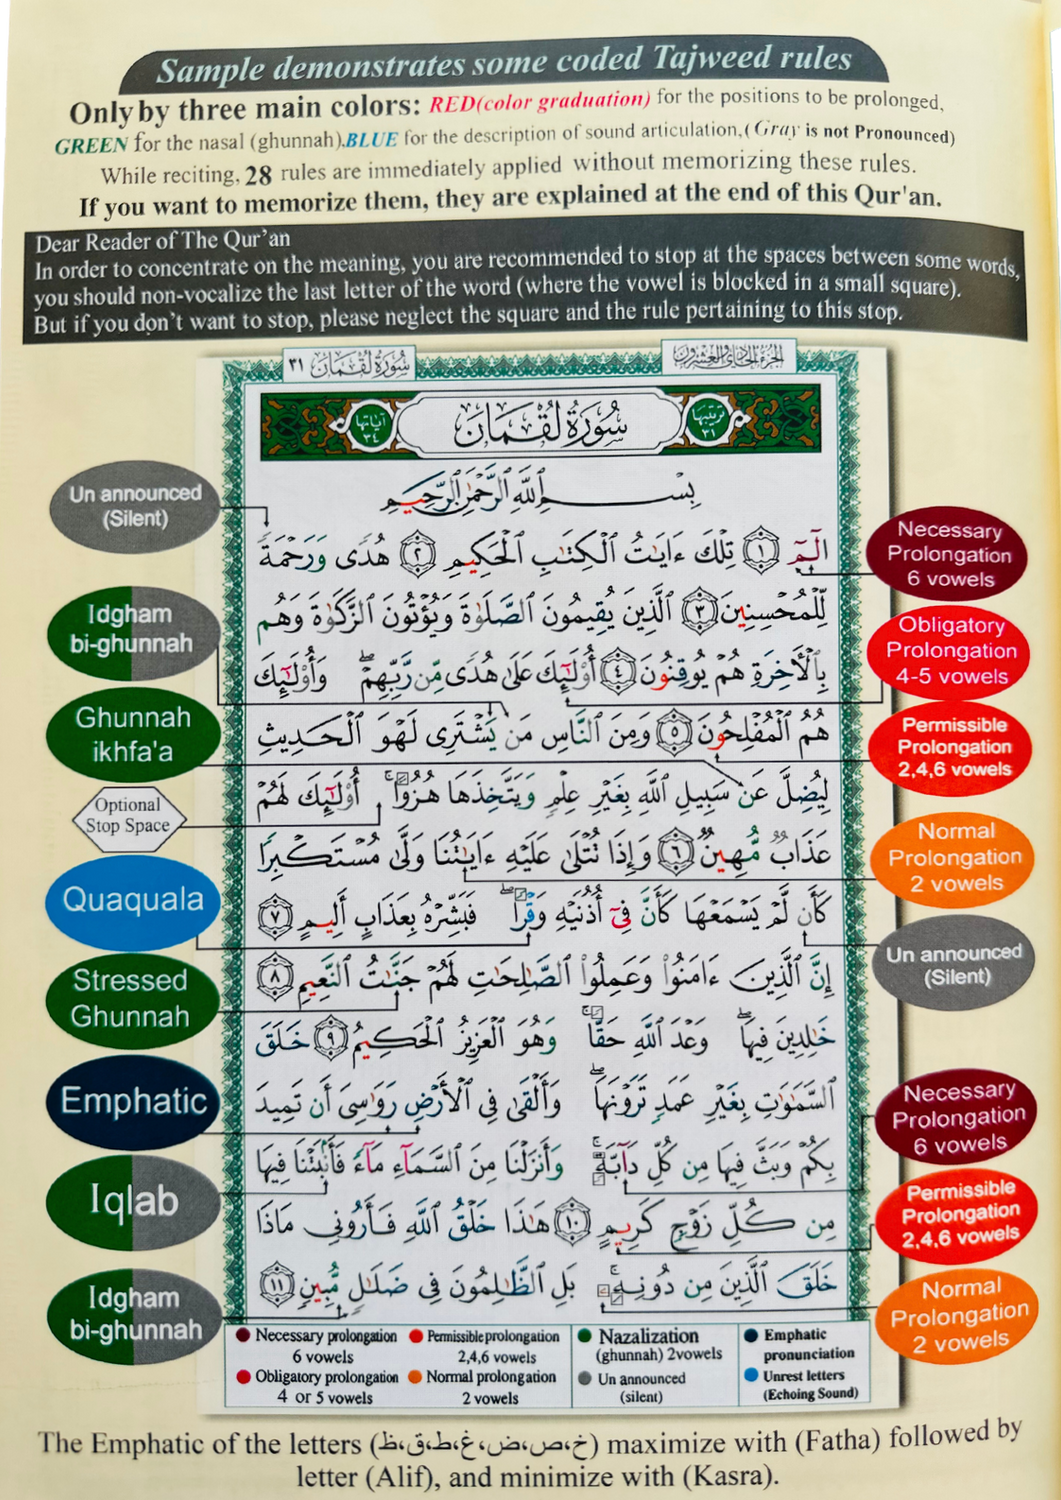 Sample demonstrates some coded Tajweed rules
Only by three main colors: RED(color graduation) for the positions to be prolonged,
GREEN for the nasal (ghunnah).BLUE for the description of sound articulation,( Gray is not Pronounced)
While reciting, 28 rules are immediately applied without memorizing these rules.
If you want to memorize them, they are explained at the end of this Qur'an.
Dear Reader of The Qur'an
In order to concentrate on the meaning, you are recommended to stop at the spaces between some words,
you should non-vocalize the last letter of the word (where the vowel is blocked in a small square).
But if you don't want to stop, please neglect the square and the rule pertaining to this stop.
الجزء الحادي والعشرون
سورة لقمان ٣١
ترتيبها ٣١
سُورَةُ لُقْمَان
آياتها ٣٤
بِسْمِ ٱللَّهِ ٱلرَّحْمَٰنِ ٱلرَّحِيمِ
الٓمٓ ١ تِلْكَ ءَايَٰتُ ٱلْكِتَٰبِ ٱلْحَكِيمِ ٢ هُدًى وَرَحْمَةً
لِّلْمُحْسِنِينَ ٣ ٱلَّذِينَ يُقِيمُونَ ٱلصَّلَوٰةَ وَيُؤْتُونَ ٱلزَّكَوٰةَ وَهُم
بِٱلْءَاخِرَةِ هُمْ يُوقِنُونَ ٤ أُوْلَٰٓئِكَ عَلَىٰ هُدًى مِّن رَّبِّهِمْ ۖ وَأُوْلَٰٓئِكَ
هُمُ ٱلْمُفْلِحُونَ ٥ وَمِنَ ٱلنَّاسِ مَن يَشْتَرِى لَهْوَ ٱلْحَدِيثِ
لِيُضِلَّ عَن سَبِيلِ ٱللَّهِ بِغَيْرِ عِلْمٍ وَيَتَّخِذَهَا هُزُوًا ۚ أُوْلَٰٓئِكَ لَهُمْ
عَذَابٌ مُّهِينٌ ٦ وَإِذَا تُتْلَىٰ عَلَيْهِ ءَايَٰتُنَا وَلَّىٰ مُسْتَكْبِرًا
كَأَن لَّمْ يَسْمَعْهَا كَأَنَّ فِىٓ أُذُنَيْهِ وَقْرًا ۖ فَبَشِّرْهُ بِعَذَابٍ أَلِيمٍ ٧
إِنَّ ٱلَّذِينَ ءَامَنُوا۟ وَعَمِلُوا۟ ٱلصَّٰلِحَٰتِ لَهُمْ جَنَّٰتُ ٱلنَّعِيمِ ٨
خَٰلِدِينَ فِيهَا ۖ وَعْدَ ٱللَّهِ حَقًّا ۚ وَهُوَ ٱلْعَزِيزُ ٱلْحَكِيمُ ٩ خَلَقَ
ٱلسَّمَٰوَٰتِ بِغَيْرِ عَمَدٍ تَرَوْنَهَا ۖ وَأَلْقَىٰ فِى ٱلْأَرْضِ رَوَٰسِىَ أَن تَمِيدَ
بِكُمْ وَبَثَّ فِيهَا مِن كُلِّ دَآبَّةٍ ۚ وَأَنزَلْنَا مِنَ ٱلسَّمَآءِ مَآءً فَأَنۢبَتْنَا فِيهَا
مِن كُلِّ زَوْجٍ كَرِيمٍ ١٠ هَٰذَا خَلْقُ ٱللَّهِ فَأَرُونِى مَاذَا
خَلَقَ ٱلَّذِينَ مِن دُونِهِۦ ۚ بَلِ ٱلظَّٰلِمُونَ فِى ضَلَٰلٍ مُّبِينٍ ١١
Un announced
(Silent)
Idgham
bi-ghunnah
Ghunnah
ikhfa'a
Optional
Stop Space
Quaquala
Stressed
Ghunnah
Emphatic
Iqlab
Idgham
bi-ghunnah
Necessary
Prolongation
6 vowels
Obligatory
Prolongation
4-5 vowels
Permissible
Prolongation
2,4,6 vowels
Normal
Prolongation
2 vowels
Un announced
(Silent)
Necessary
Prolongation
6 vowels
Permissible
Prolongation
2,4,6 vowels
Normal
Prolongation
2 vowels
Necessary prolongation
6 vowels
Obligatory prolongation
4 or 5 vowels
Permissible prolongation
2,4,6 vowels
Normal prolongation
2 vowels
Nazalization
(ghunnah) 2vowels
Un announced
(silent)
Emphatic
pronunciation
Unrest letters
(Echoing Sound)
The Emphatic of the letters (خ،ص،ض،غ،ط،ق،ظ) maximize with (Fatha) followed by
letter (Alif), and minimize with (Kasra).